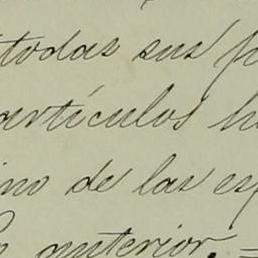 todas sus
artículos
de las
anterior.